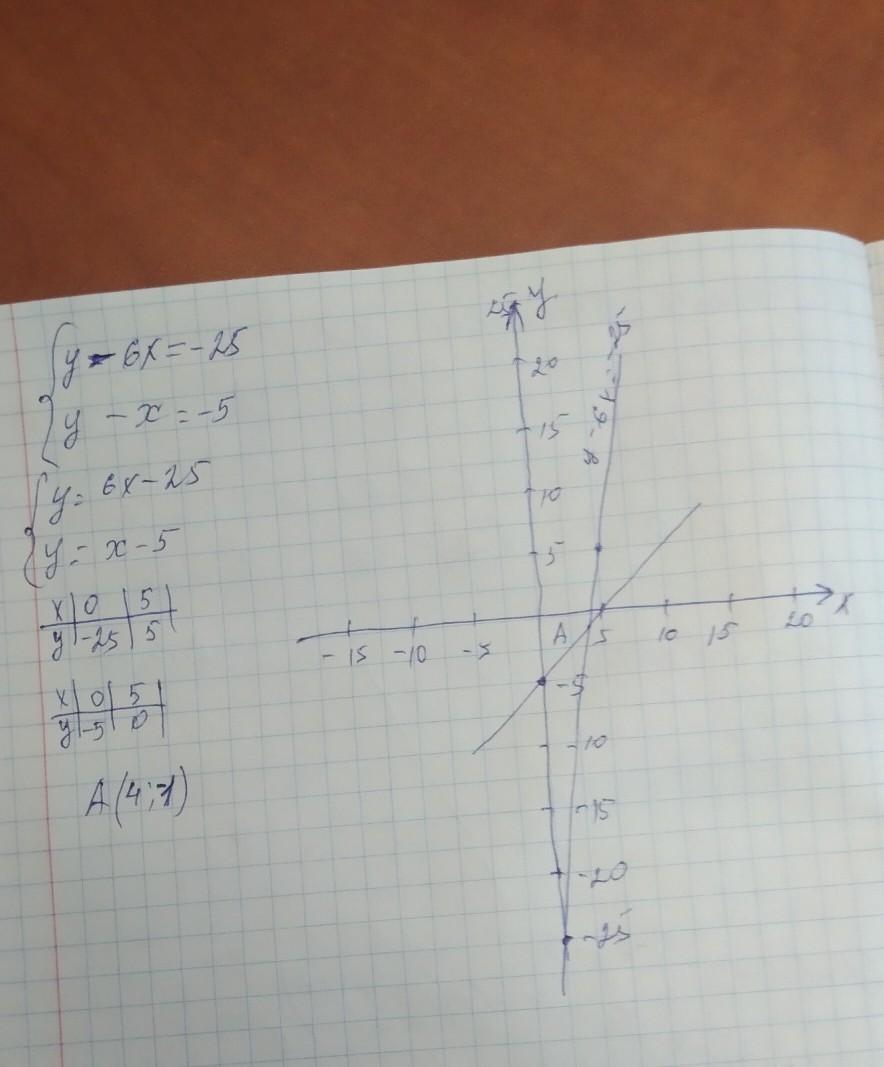 y - 6x = -25
y - x = -5
y = 6x - 25
y = x - 5
x | 0 | 5 |
y | -25 | 5 |
x | 0 | 5 |
y | -5 | 0 |
A(4; -1)
25 y
20
15
10
5
y - 6x = -25
-15 -10 -5 A 5 10 15 20 x
-5
-10
-15
-20
-25